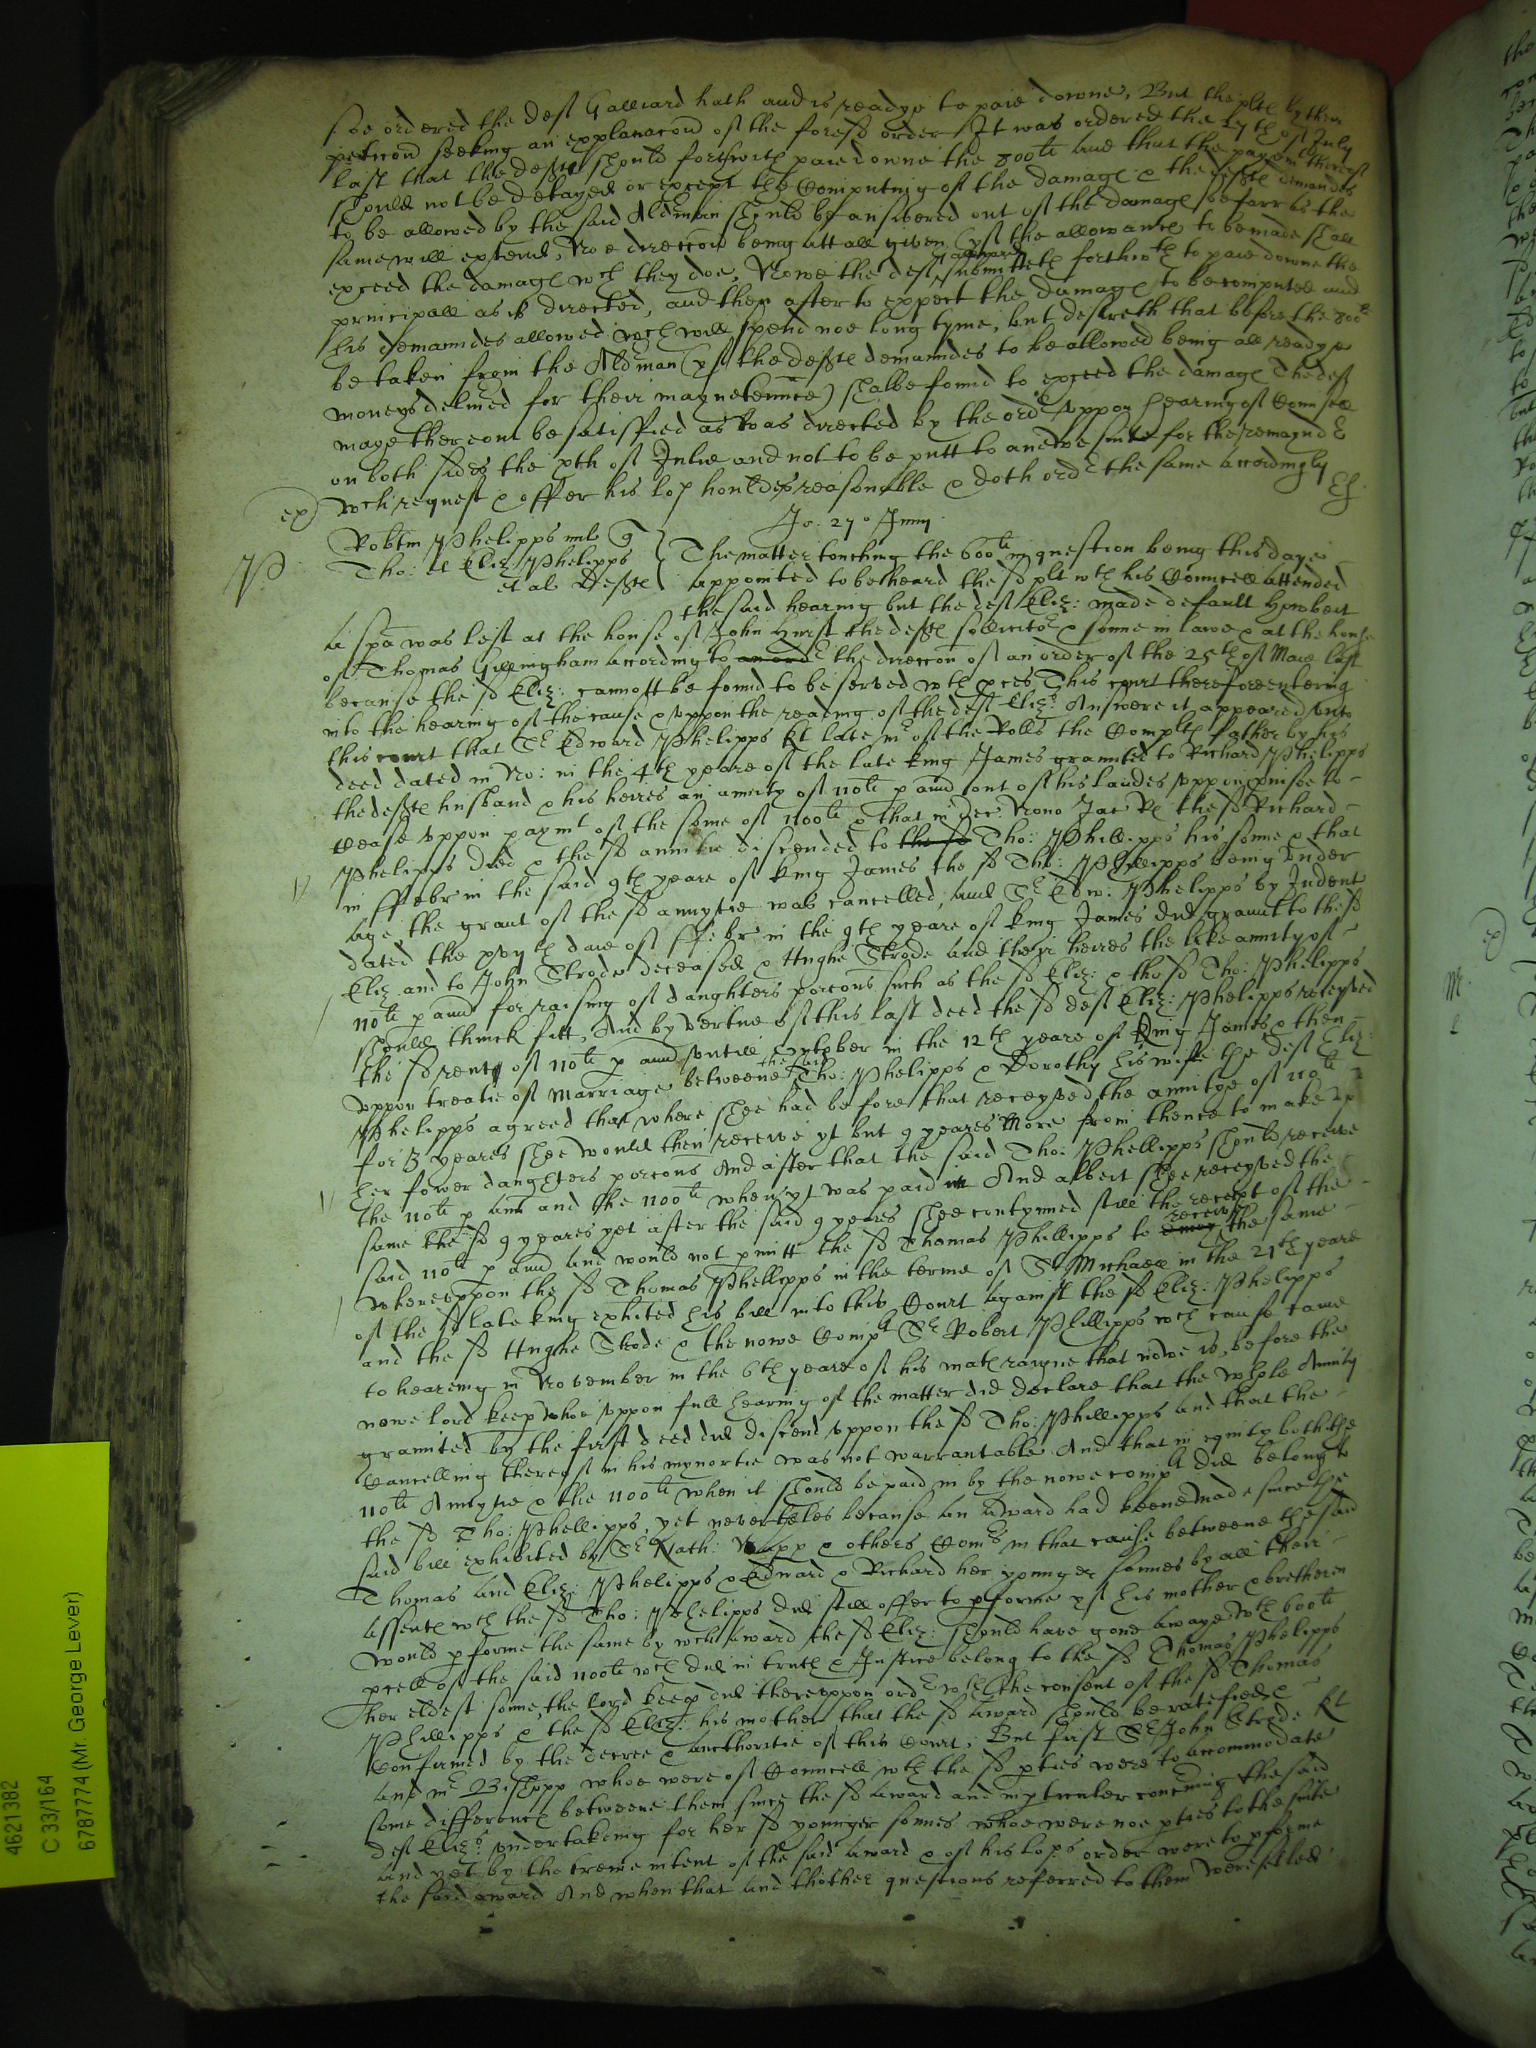 soe ordered the deft Galliard hath and is readye to paie downe, But the plts by their
peticion seeking an explanacon of the fores:d order It was ordered the 17th of July
last that the defts should forthwith paie downe the 800li and that the paymt thereof
should not be delayed or except the Computing of the damage & the defts demandes
to be allowed by the said Aldman should be answered out of the damage soe farr as the
same will extend, Noe direccon being att all given yf the allowance to be made shall
exceed the damage wch they doe, Nowe the deft Galliard submitteth forthwth to paie downe the
principall as is directed, and then after to expect the damage to be computed and
his demaundes allowed wch will spend noe long tyme, but desireth that before the 800li
be taken from the Aldman (yf the defts demaundes to be allowed being allreadye
moneys delivered for their mayntenaunce) shalbe found to exceed the damage The deft
maye thereout be satisfied as was directed by the ordr uppon hearing of Counsell
on both sides the xth of Julie and not to be putt to anewe suite for the remaynder
wch request & offer his lop houldes reasonable & doth ordr the same accordingly
ex)
Eh
Jo: 27o Junij
P
Robtm Phelipps mil q
Tho: et Eliz: Phelipps
et al Defts
The matter touching the 600li in question being this daye
appointed to be heard the sd plt wth his Councell attended
the said hearing but the deft Eliz: made default hwbeit
a spa was left at the house of John Hurst the defts sollicitor & sonne in lawe & at the house
of Thomas Gillingham according to an ordr the direccon of an order of the 25th of Maie last
because the sd Eliz: cannott be found to be served wth pces This court therefore entering
into the hearing of the cause & uppon the reading of the deft Eliz: Answere it appeared unto
this court that Sr Edward Phelipps Kt late mr of the Rolls the Complts father by his
deed dated in No: in the 4th yeare of the late king James graunted to Richard Phelipps
the defts husband & his heires an anuity of 110li p ann out of his landes uppon pmise to
cease uppon paymt of the some of 1100li & that in Dec: Nono Jac Rs the sd Richard
Phelipps died & the sd annitie discended to the sd Tho: Phillipps his sonne & that
in ffebr in the said 9th yeare of king James the sd Tho: Phillipps being under
age the graunt of the sd annytie was cancelled, and Sr Edw: Phelipps by Indent
dated the xvijth daie of ffebr in the 9th yeare of king James did graunt to the sd
Eliz and to John Strode deceased & Hughe Strode and their heires the like anuity of
110li p ann for raising of daughters porcons such as the sd Eliz: & the sd Tho: Phelipps
should thinck fitt, And by vertue of this last deed the sd deft Eliz: Phelipps receyved
the sd rent of 110li p ann untill October in the 12th yeare of King James & then
uppon treatie of Marriage betweene the said Tho: Phelipps & Dorothy his wife the deft Eliz:
Phelipps agreed that where shee had before that receyved the annitye of 110li
for 3 yeares shee would then receive yt but 9 yeares more from thence to make up
her fower daughters porcons And after that the said Tho: Phellipps should receive
the 110li p ann and the 1100li when yt was paid in And albeit shee receyved the
same the sd 9 yeares yet after the said 9 yeares shee contynued still the receipt of the
said 110li p ann and would not pmitt the sd Thomas Phillipps to receive the same
whereuppon the sd Thomas Phellipps in the terme of St Michaell in the 21th yeare
of the sd late king exhited his bill into this Court against the sd Eliz: Phelipps
and the sd Hughe Strode & the nowe Complt Sr Robert Phillipps wch cause came
to heareing in November in the 6th yeare of his mats raigne that nowe is, before the
nowe lord keep whoe uppon full hearing of the matter did declare that the whole Anuity
graunted by the first deed did discend uppon the sd Tho: Phillipps and that the
Cancelling thereof in his mynortie was not warrantable And that in equity both the
110li Anuytie & the 1100li when it should be paid in by the nowe complt did belong to
the sd Tho: Phellipps, yet neverthelesse because an award had beene made since the
said bill exhibited by Sr Nath: Napp & others Comrs in that cause betweene the said
Thomas and Eliz: Phelipps & Edward & Richard her younger sonnes by all their
assents wch the sd Tho: Phelipps did still offer to pforme yf his mother & bretheren
would pforme the same by wch award the sd Eliz: should have gone awaye wth 600li
pcell of the said 1100li wch did in truth & Justice belong to the sd Thomas Phelipps
her eldest sonne, the lord keep did thereuppon ordr wth the consent of the sd Thomas
Phillipps & the sd Eliz: his mother that the sd award should be ratefied &
Confirmed by the decree & aucthoritie of this Court; But first Sr John Strode Kt
and mr Bishopp whoe were of Councell wth the sd pties were to accommodate
some difference betweene them since the sd award and in pticuler concerning the said
deft Eliz: undertakeing for her sd younger sonnes whoe were noe pties to the suite
and yet by the trewe intent of the said award & of his lops order were to pforme
the said award And when that and thother questions referred to them were settled
4621382
C 33/164
6787774 (Mr. George Lever)